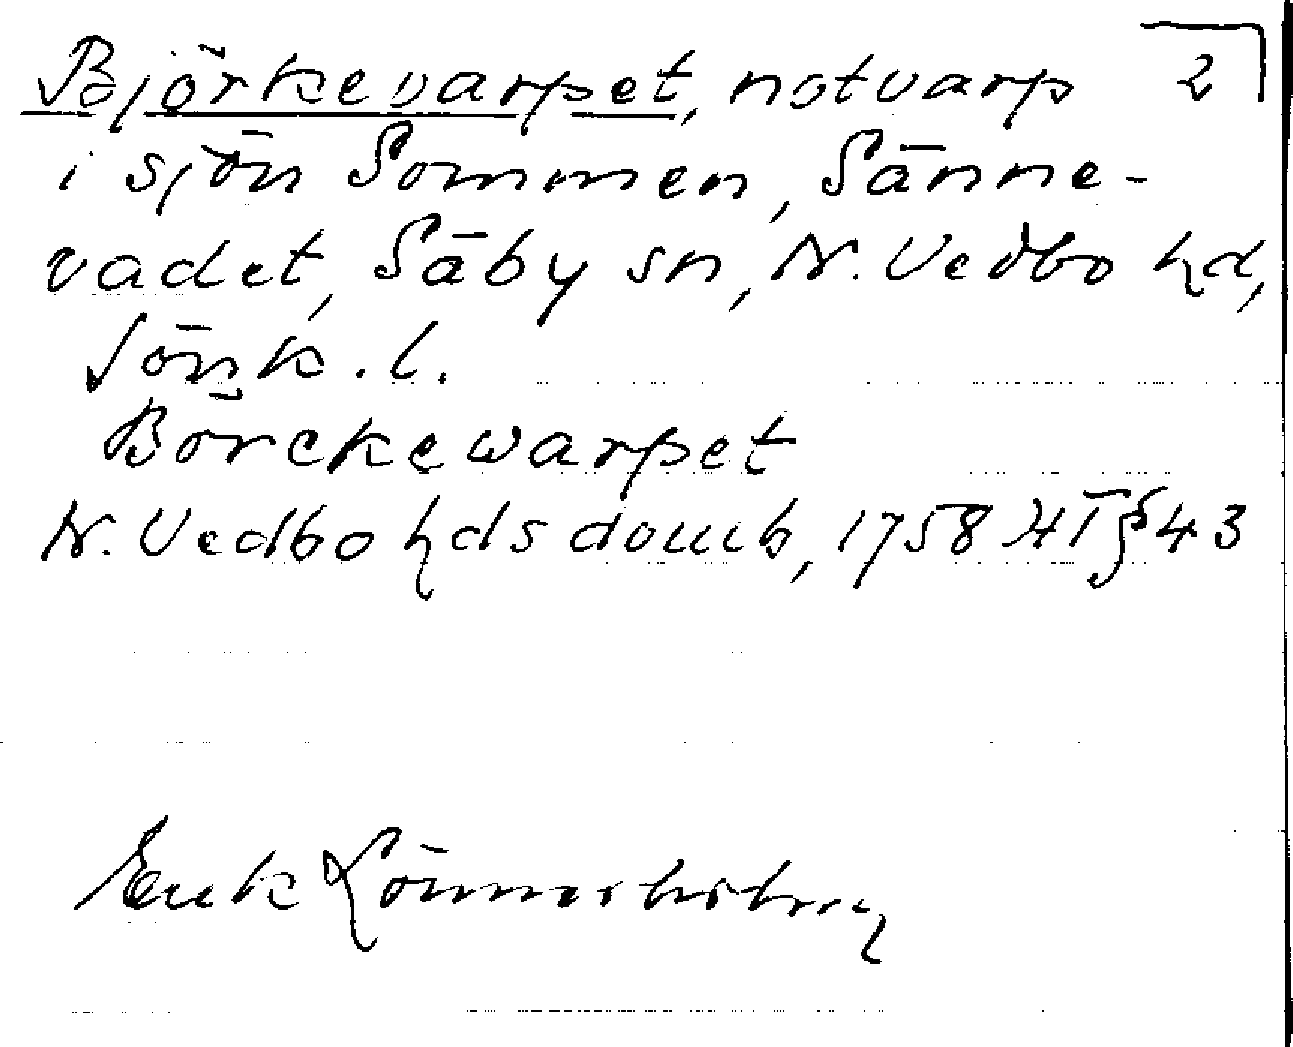 Björkevarpet, notvarp 2
i sjön Sommen, Sänne-
vadet, Säby sn, N. Vedbo hd,
Jönk. l.
Börckewarpet
N. Vedbo hds domb, 1758 HT § 43
Erik